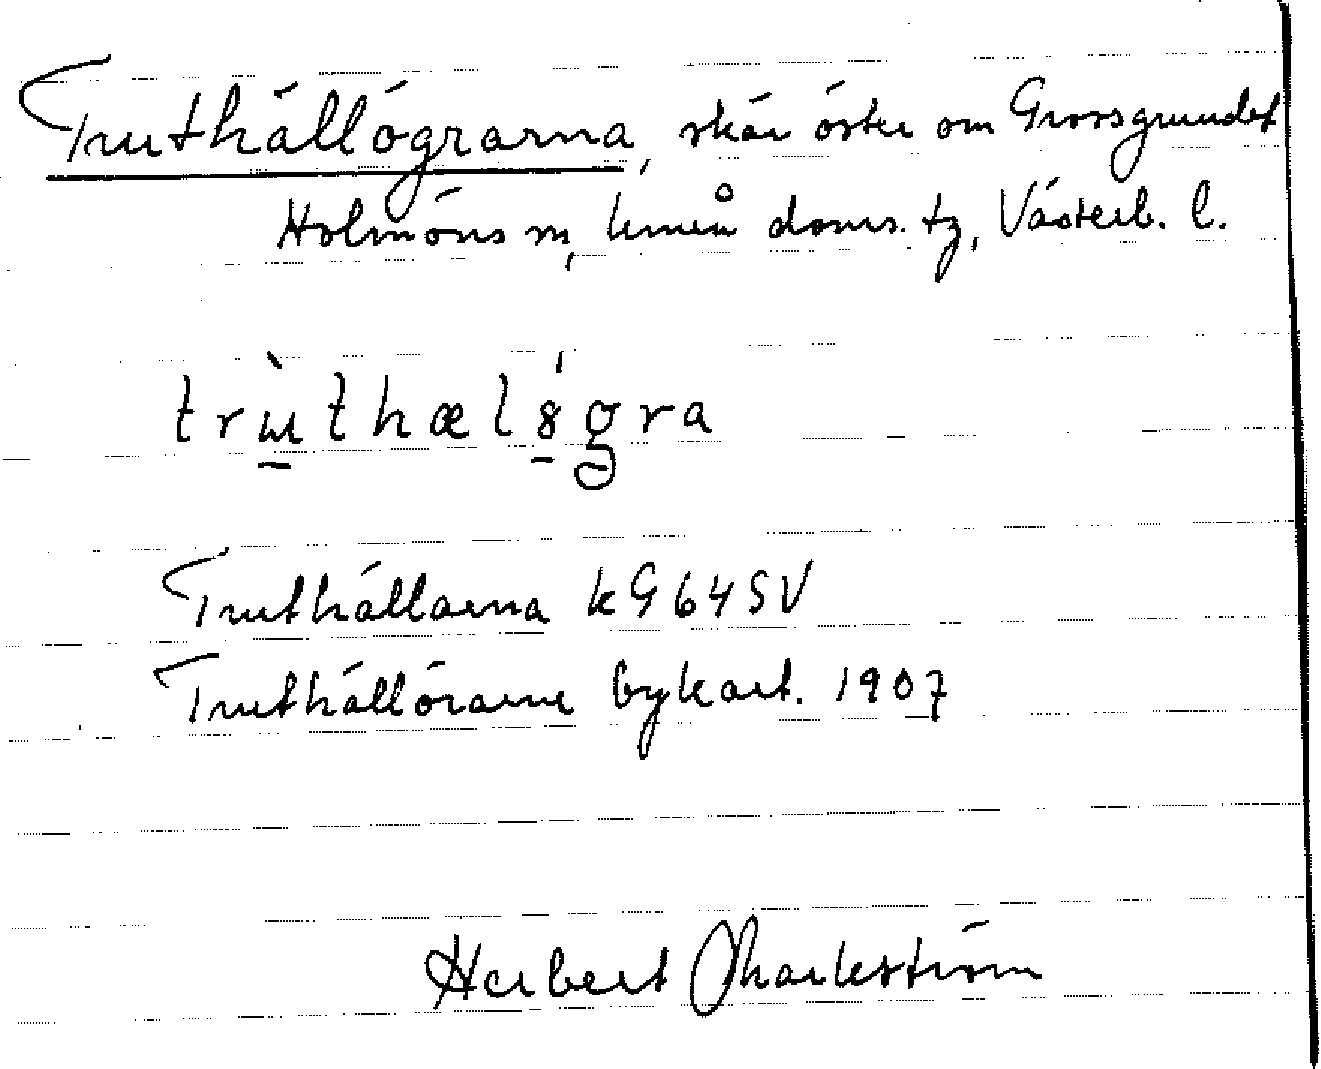 Truthällögrarna, skär öster om Grossgrundet
Holmöns sn, Umeå doms. tg, Västerb. l.
trùthælǿgra
Truthällarna kG 64 SV
Truthällörarne bykart. 1907
Herbert Markström